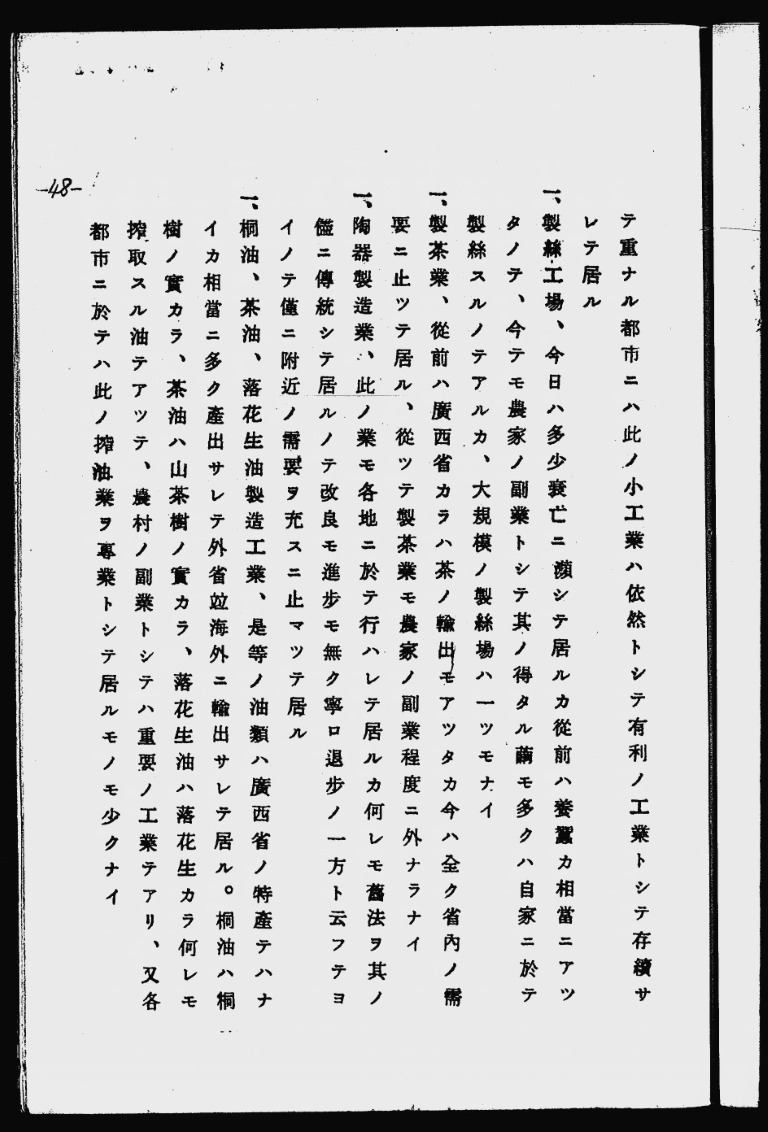 テ重ナル都市ニハ此ノ小工業ハ依然トシテ有利ノ工業トシテ存續サ
レテ居ル
一、製絲工場、今日ハ多少衰亡ニ瀕シテ居ルカ從前ハ養蠶カ相當ニアツ
タノテ、今テモ農家ノ副業トシテ其ノ得タル繭モ多クハ自家ニ於テ
製絲スルノテアルカ、大規模ノ製絲場ハ一ツモナイ
一、製茶業、從前ハ廣西省カラハ茶ノ輸出モアツタカ今ハ全ク省內ノ需
要ニ止ツテ居ル、從ツテ製茶業モ農家ノ副業程度ニ外ナラナイ
一、陶器製造業、此ノ業モ各地ニ於テ行ハレテ居ルカ何レモ舊法ヲ其ノ
儘ニ傳統シテ居ルノテ改良モ進步モ無ク寧ロ退步ノ一方ト云フテヨ
イノテ僅ニ附近ノ需要ヲ充スニ止マツテ居ル
一、桐油、茶油、落花生油製造工業、是等ノ油類ハ廣西省ノ特產テハナ
イカ相當ニ多ク產出サレテ外省竝海外ニ輸出サレテ居ル。桐油ハ桐
樹ノ實カラ、茶油ハ山茶樹ノ實カラ、落花生油ハ落花生カラ何レモ
搾取スル油テアツテ、農村ノ副業トシテハ重要ノ工業テアリ、又各
都市ニ於テハ此ノ搾油業ヲ專業トシテ居ルモノモ少クナイ
-48-